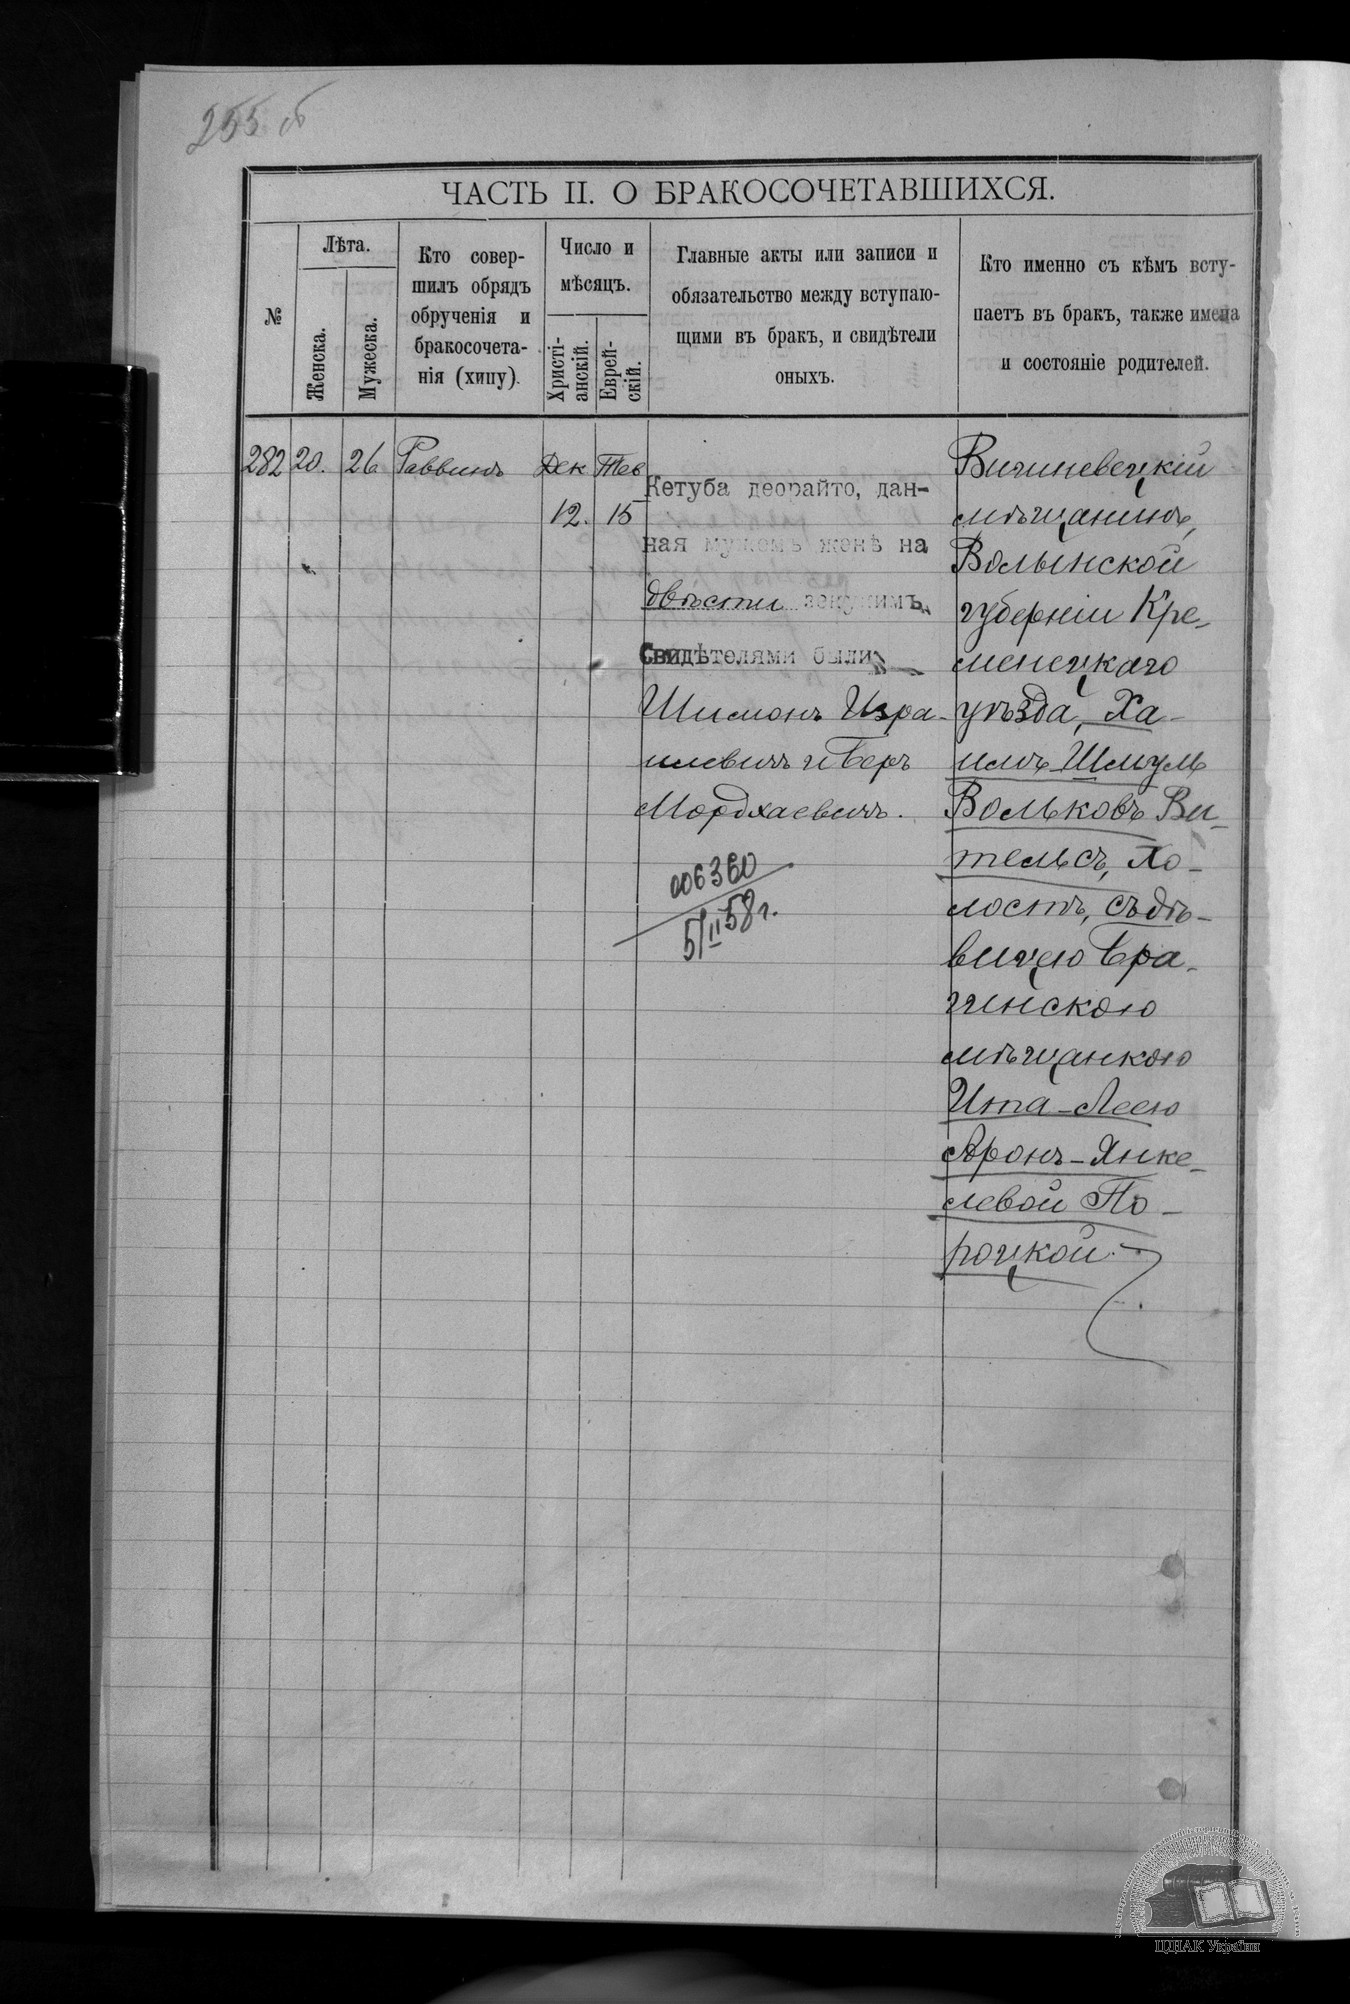 255 об
ЧАСТЬ II. О БРАКОСОЧЕТАВШИХСЯ.
№
Лѣта.
Женска.
Мужеска.
Кто совер-
шилъ обрядъ
обрученія и
бракосочета-
нія (хипу).
Число и
мѣсяцъ.
Христі-
анскій.
Еврей-
скій.
Главные акты или записи и
обязательство между вступаю-
щими въ бракъ, и свидѣтели
оныхъ.
Кто именно съ кѣмъ всту-
паетъ въ бракъ, также имена
и состояніе родителей.
282
20.
26
Раввинъ
Дек
12.
Тев
15
Кетуба деорайто, дан-
ная мужемъ женѣ на
двѣсти зекукимъ
Свидѣтелями были
Шимонъ Изра-
илевичъ и Беръ
Мордхаевичъ.
006360
5/II 58 г.
Вишневецкій
мѣщанинъ,
Волынской
губерніи Кре-
менецкаго
уѣзда, Ха-
имъ Шмуль
Вольковъ Ви-
тельсъ, хо-
лостъ, съ дѣ-
вицею Бра-
гинскою
мѣщанкою
Ита-Леею
Аронъ-Янке-
левой По-
роцкой.
ЦДІАК України